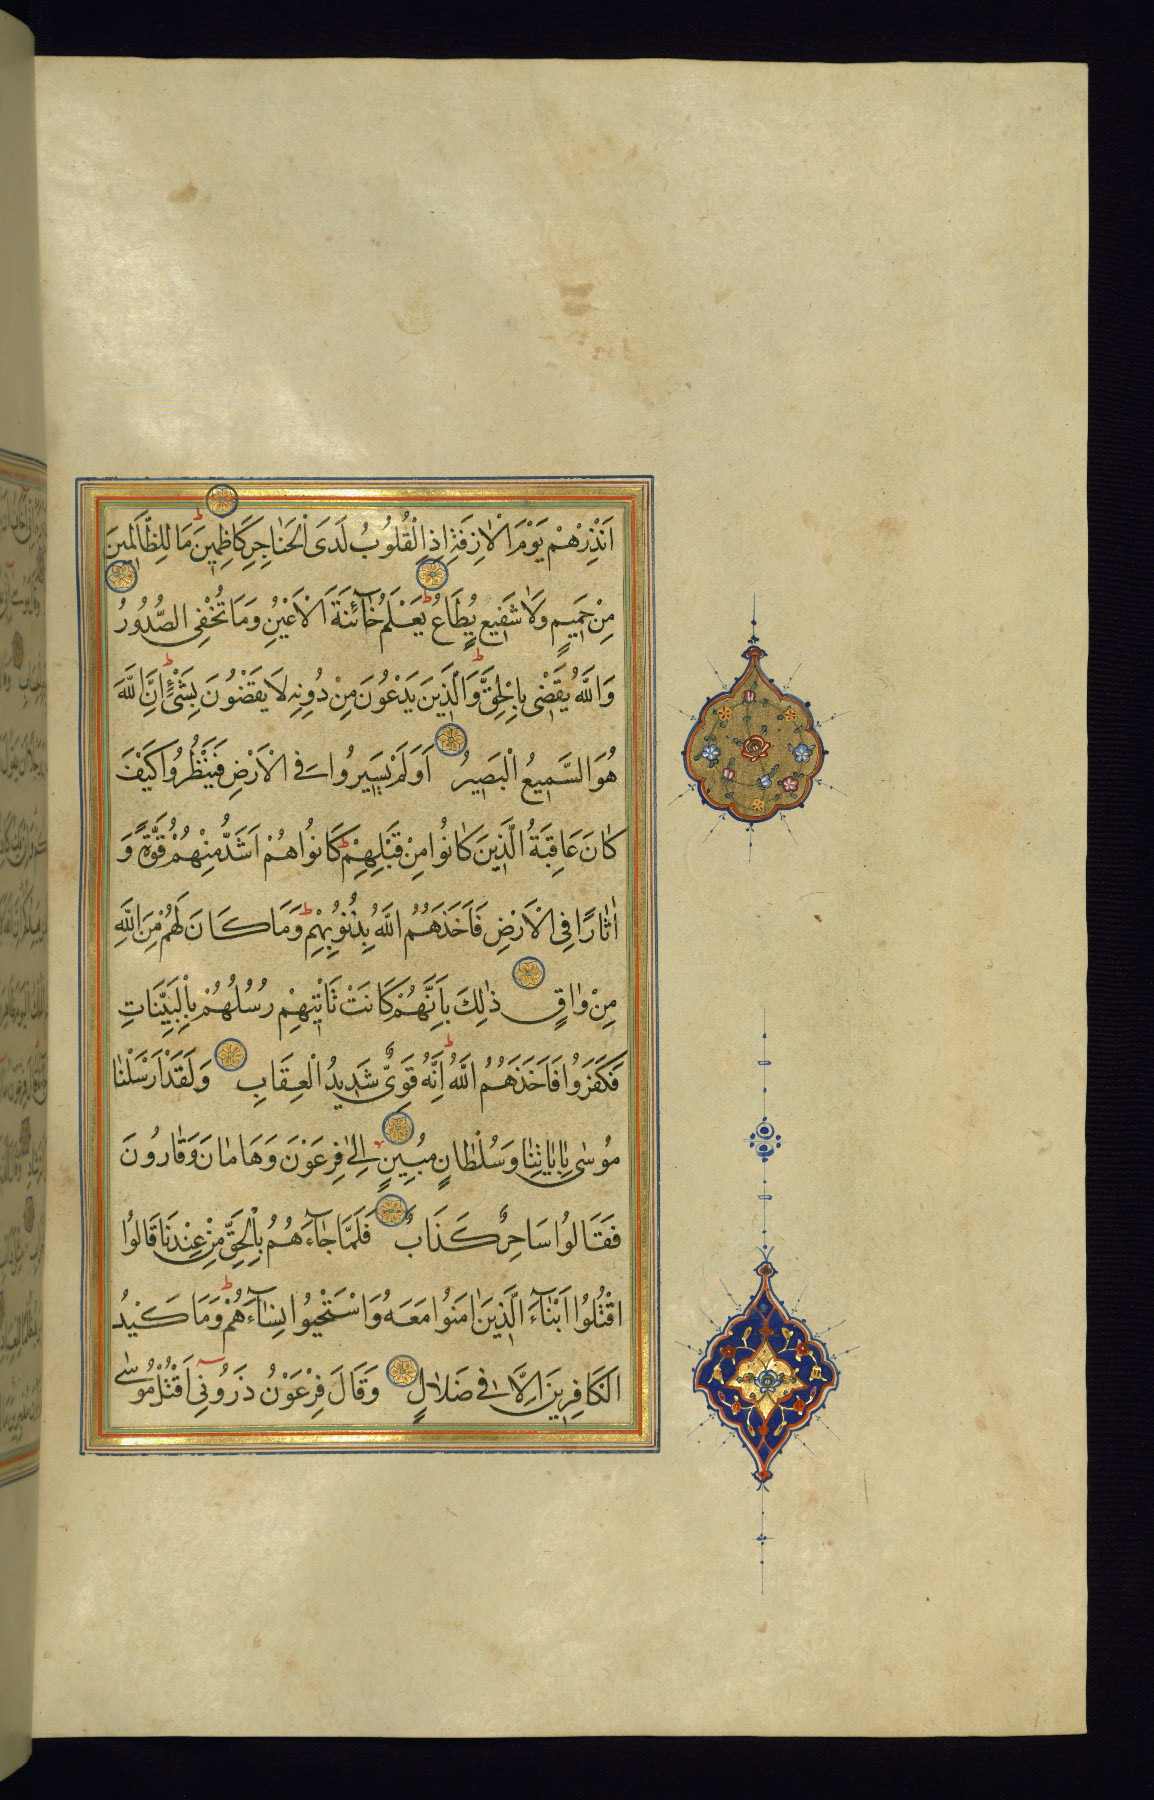 اَنْذِرْهُمْ يَوْمَ الْاٰزِفَةِ اِذِ الْقُلُوبُ لَدَى الْحَنَاجِرِ كَاظِمِينَ ط مَا لِلظَّالِمِينَ
مِنْ حَمِيمٍ وَلَا شَفِيعٍ يُطَاعُ ط يَعْلَمُ خَآئِنَةَ الْاَعْيُنِ وَمَا تُخْفِى الصُّدُورُ
وَاللّٰهُ يَقْضِى بِالْحَقِّ ط وَالَّذِينَ يَدْعُونَ مِنْ دُونِهِ لَا يَقْضُونَ بِشَىْءٍ ط اِنَّ اللّٰهَ
هُوَ السَّمِيعُ الْبَصِيرُ اَوَلَمْ يَسِيرُوا فِى الْاَرْضِ فَيَنْظُرُوا كَيْفَ
كَانَ عَاقِبَةُ الَّذِينَ كَانُوا مِنْ قَبْلِهِمْ ط كَانُوا هُمْ اَشَدَّ مِنْهُمْ قُوَّةً وَ
اٰثَارًا فِى الْاَرْضِ فَاَخَذَهُمُ اللّٰهُ بِذُنُوبِهِمْ ط وَمَا كَانَ لَهُمْ مِنَ اللّٰهِ
مِنْ وَاقٍ ذٰلِكَ بِاَنَّهُمْ كَانَتْ تَاْتِيهِمْ رُسُلُهُمْ بِالْبَيِّنَاتِ
فَكَفَرُوا فَاَخَذَهُمُ اللّٰهُ ط اِنَّهُ قَوِىٌّ شَدِيدُ الْعِقَابِ وَلَقَدْ اَرْسَلْنَا
مُوسٰى بِاٰيَاتِنَا وَسُلْطَانٍ مُبِينٍ اِلٰى فِرْعَوْنَ وَهَامَانَ وَقَارُونَ
فَقَالُوا سَاحِرٌ كَذَّابٌ فَلَمَّا جَآءَهُمْ بِالْحَقِّ مِنْ عِنْدِنَا قَالُوا
اقْتُلُوا اَبْنَآءَ الَّذِينَ اٰمَنُوا مَعَهُ وَاسْتَحْيُوا نِسَآءَهُمْ ط وَمَا كَيْدُ
الْكَافِرِينَ اِلَّا فِى ضَلَالٍ وَقَالَ فِرْعَوْنُ ذَرُونِى اَقْتُلْ مُوسٰى